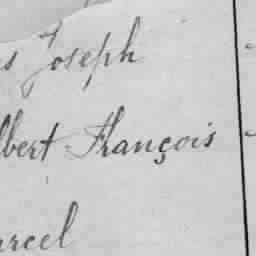 s Joseph
lbert François
arcel